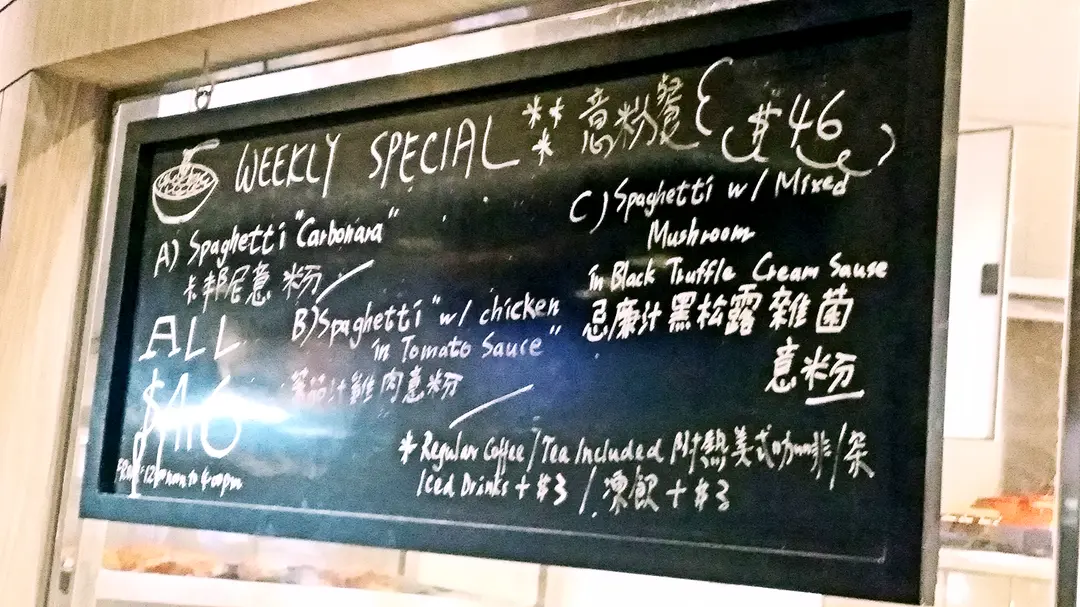 WEEKLY SPECIAL *** 意粉餐 { $46 }
A) Spaghetti "Carbonara"
卡邦尼意粉
B) Spaghetti "w/ chicken
in Tomato Sauce"
蕃茄汁雞肉意粉
C) Spaghetti w/ Mixed
Mushroom
in Black Truffle Cream Sauce
忌廉汁黑松露雜菌
意粉
ALL
$46
12:00 noon to 4:00pm
* Regular Coffee / Tea Included 附熱美式咖啡/茶
Iced Drinks + $3 / 凍飲 + $3